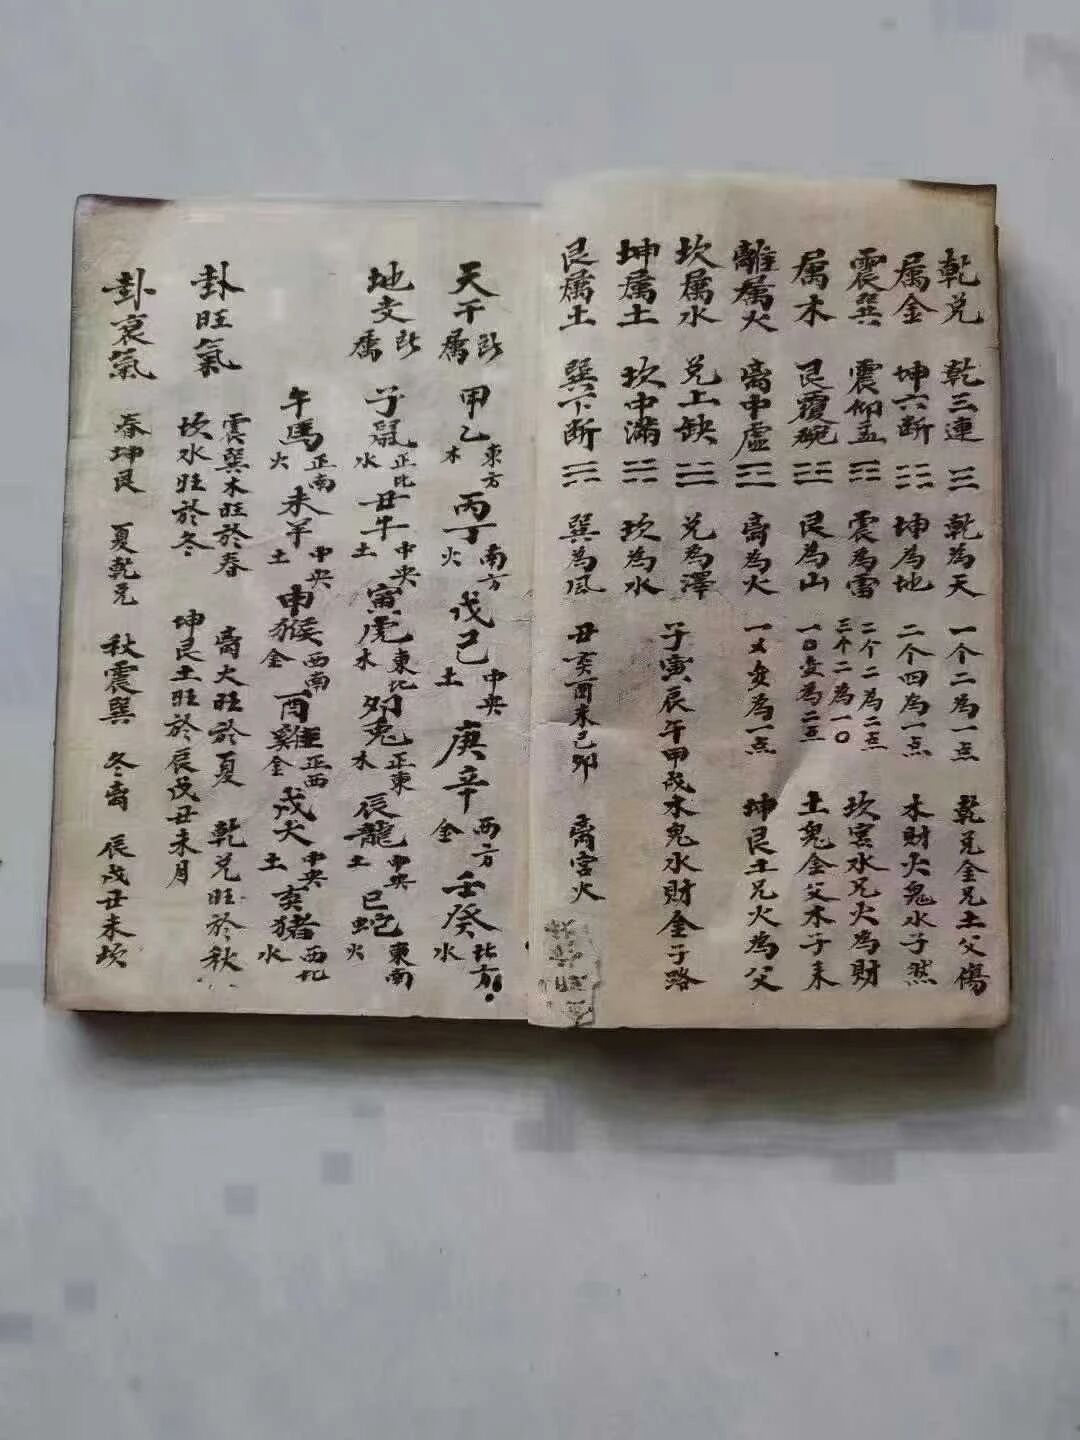 乾兑 乾三連 ☰ 乾為天 一个二為一点 乾兑金兄土父傷
属金 坤六断 ☷ 坤為地 二个四為一点 木財火鬼水子然
震巽 震仰盂 ☳ 震為雷 二个二為二点 三个二為一〇 坎宫水兄火為財
属木 艮覆碗 ☶ 艮為山 一〇变為二点 土鬼金父木子来
離属火 离中虚 ☲ 离為火 一乂变為一点 坤艮土兄火為父
坎属水 兑上缺 ☱ 兑為澤
坤属土 坎中滿 ☵ 坎為水 子寅辰午申戌 木鬼水財金子路
艮属土 巽下断 ☴ 巽為风 丑亥酉未巳卯 离宫火
天干所属 甲乙 東方木 丙丁 南方火 戊己 中央土 庚辛 西方金 壬癸 北方水
地支所属 子鼠 正北水 丑牛 中央土 寅虎 東北木 卯兔 正東木 辰龍 中央土 巳蛇 東南火
午馬 正南火 未羊 中央土 申猴 西南金 酉雞 正西金 戌犬 中央土 亥猪 西北水
卦旺氣 震巽木旺於春 离火旺於夏 乾兑旺於秋
坎水旺於冬 坤艮土旺於辰戌丑未月
卦衰氣 春坤艮 夏乾兑 秋震巽 冬离 辰戌丑未坎